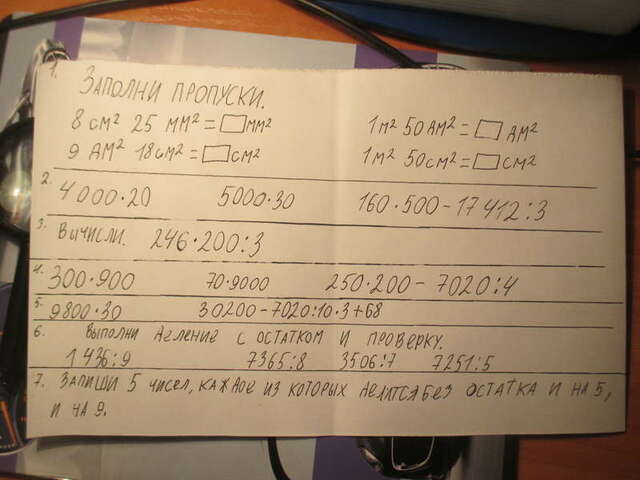 1. Заполни пропуски.
8 см² 25 мм² = □ мм² 1м² 50 дм² = □ дм²
9 дм² 18см² = □ см² 1м² 50см² = □ см²
2. 4000·20 5000·30 160·500-17412:3
3. Вычисли. 246·200:3
4. 300·900 70·9000 250·200-7020:4
5. 9800·30 30200-7020:10·3+68
6. Выполни деление с остатком и проверку.
1436:9 7365:8 3506:7 7251:5
7. Запиши 5 чисел, каждое из которых делится без остатка и на 5,
и на 9.